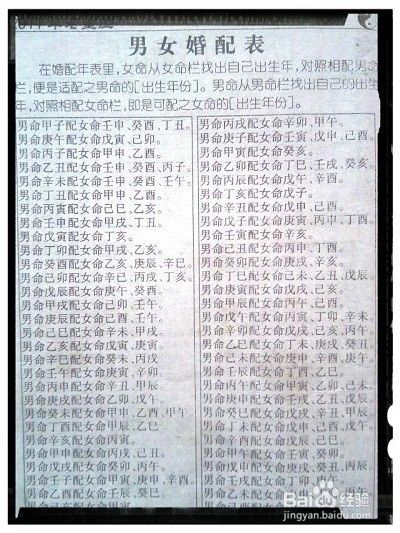 男女婚配表
在婚配年表里，女命从女命栏找出自己出生年，对照相配男命
栏，便是适配之男命的[出生年份]。男命从男命栏找出自己的出生
年，对照相配女命栏，即是可配之女命的[出生年份]。
男命甲子配女命壬申、癸酉、丁丑。
男命庚午配女命戊寅、己卯。
男命丙子配女命甲申、乙酉。
男命乙丑配女命壬申、癸酉、丙子。
男命辛未配女命壬申、癸酉、壬午。
男命丁丑配女命甲申、乙酉。
男命丙寅配女命己巳、乙亥。
男命壬申配女命甲戌、丁丑。
男命戊寅配女命丁亥。
男命丁卯配女命甲戌、乙亥。
男命癸酉配女命乙亥、庚辰、辛巳。
男命己卯配女命辛巳、丙戌、丁亥。
男命戊辰配女命庚午、癸酉。
男命甲戌配女命己卯、壬午。
男命庚辰配女命壬午。
男命己巳配女命辛未、甲戌。
男命乙亥配女命戊寅、庚寅。
男命辛巳配女命癸未、丙戌
男命壬午配女命庚寅、辛卯
男命丙申配女命辛丑、甲辰。
男命配女命戊午
男命癸未配女命甲申、乙酉、甲午
男命丁酉配女命甲辰、乙巳。
男命辛亥配女命丙寅。
男命甲申配女命丙戌、己丑。
男命戊戌配女命癸卯、丙午。
男命壬子配女命庚申、辛酉
男命乙酉配女命
男命丙戌配女命辛卯、甲午。
男命庚子配女命壬寅、戊申、己酉。
男命甲寅配女命癸亥。
男命乙卯配女命丁巳、壬戌、癸亥。
男命丙辰配女命戊午、辛酉。
男命丁亥配女命戊子。
男命辛丑配女命戊申、己酉。
男命戊子配女命庚寅、丙申、丁酉。
男命壬寅配女命辛亥。
男命己丑配女命丙申、丁酉。
男命癸卯配女命庚戌、辛亥。
男命丁巳配女命己未、乙丑、戊辰。
男命庚寅配女命戊戌、己亥。
男命甲辰配女命丙午、己酉。
男命戊午配女命丙寅、丁卯、辛未。
男命辛卯配女命戊戌、己亥、丙午。
男命乙巳配女命丁未、庚戌、癸丑。
男命己未配女命庚申、辛酉、庚午。
男命壬辰配女命丁酉、乙巳。
男命丙午配女命甲寅、乙卯、己未。
男命庚申配女命壬戌、乙丑、戊辰。
男命癸巳配女命戊戌、辛丑、甲辰。
男命丁未配女命戊申、己酉。
男命辛酉配女命戊辰、己巳。
男命甲午配女命壬寅、癸卯。
男命戊申配女命庚戌、癸丑、丙辰。
Baidu经验
jingyan.baidu.com